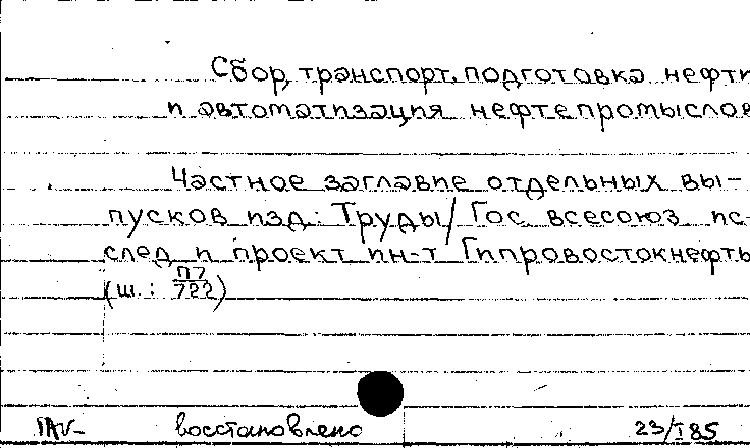 Сбор, транспорт, подготовка нефти
и автоматизация нефтепромыслов
Частное заглавие отдельных вы-
пусков изд.: Труды/ Гос. всесоюз. ис-
след. и проект. ин-т Гипровостокнефть
(ш.: П7/722)
восстановлено 23/I 85